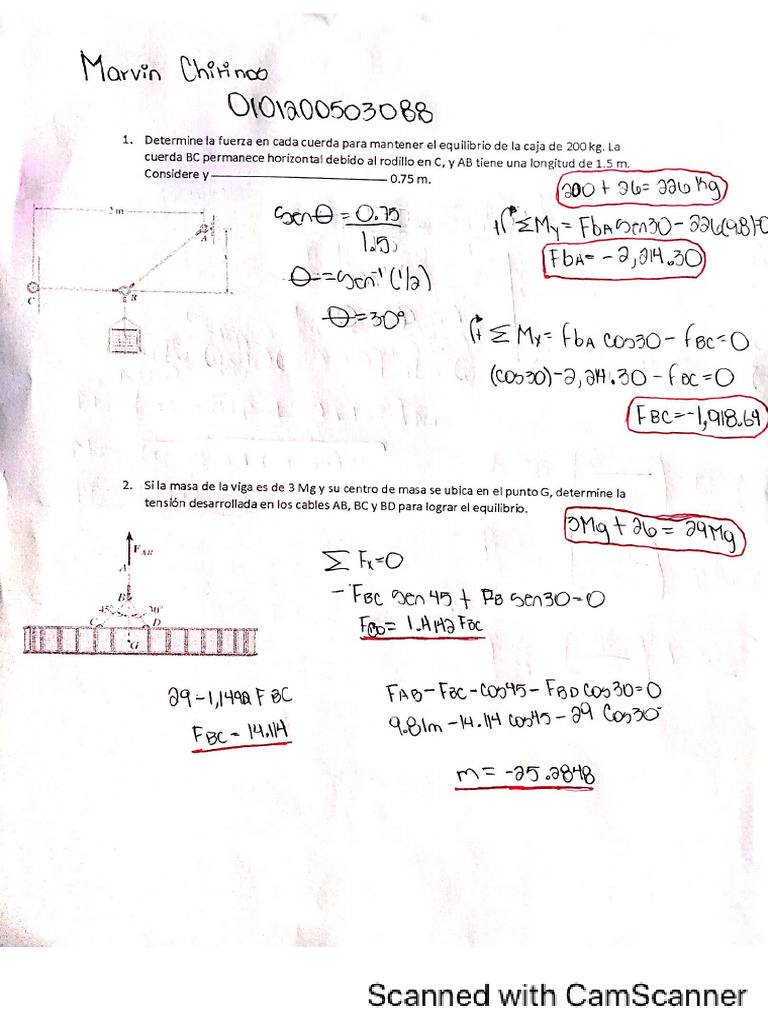 Marvin Chirinos
0101200503088
1. Determine la fuerza en cada cuerda para mantener el equilibrio de la caja de 200 kg. La
cuerda BC permanece horizontal debido al rodillo en C, y AB tiene una longitud de 1.5 m.
Considere y 0.75 m.
200 + 26 = 226 Kg
2 m
A
C
B
senθ = 0.75
1.5
θ = sen⁻¹ (1/2)
θ = 30°
+ Σ My = FbA sen30 - 226(9.8)=0
FbA = - 2,214.30
+ Σ Mx = fbA cos30 - fBC = 0
(cos30) - 2,214.30 - fBC = 0
FBC = -1,918.64
2. Si la masa de la viga es de 3 Mg y su centro de masa se ubica en el punto G, determine la
tensión desarrollada en los cables AB, BC y BD para lograr el equilibrio.
3Mg + 26 = 29Mg
FAB
A
B
45° 30°
C D
G
Σ Fx = 0
- FBC sen 45 + FB sen30 = 0
FBD = 1.4142 FBC
29 - 1,1492 FBC
FBC = 14.114
FAB - FBC - cos45 - FBD cos30 = 0
9.81m - 14.114 cos45 - 29 Cos30
m = -25.2848
Scanned with CamScanner